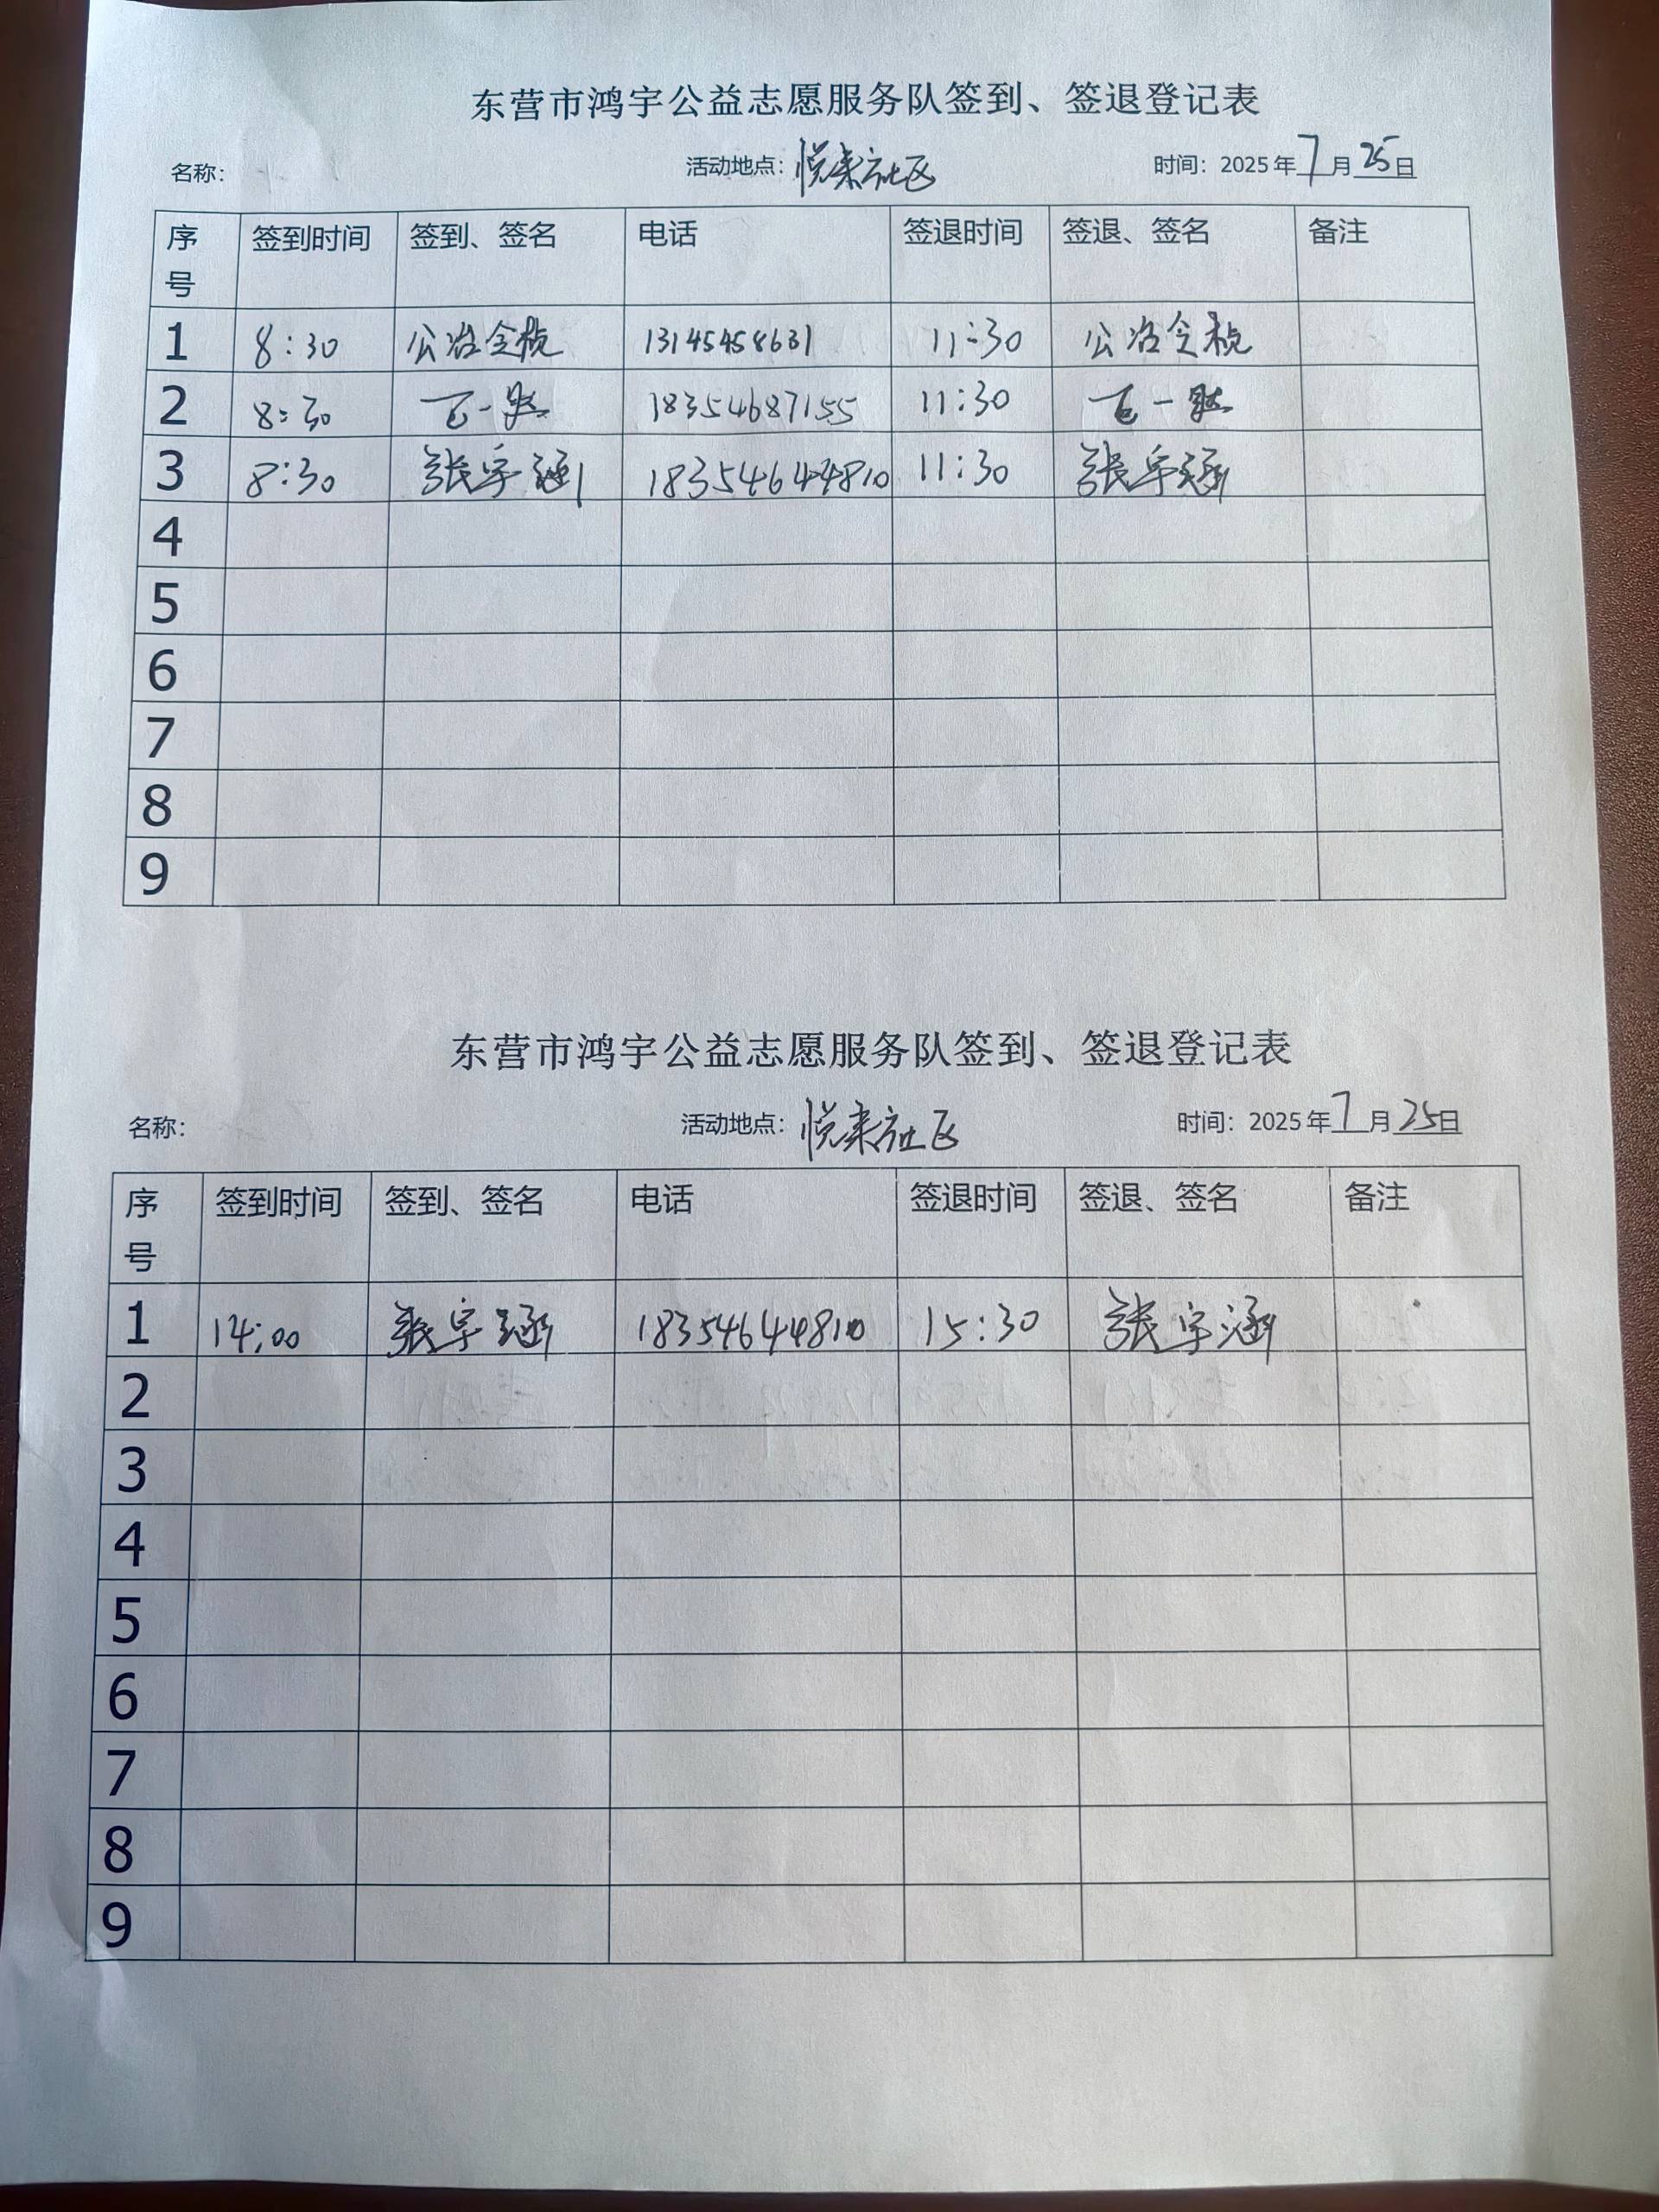 东营市鸿宇公益志愿服务队签到、签退登记表
名称： 活动地点：悦来社区 时间：2025年7月25日
序号 签到时间 签到、签名 电话 签退时间 签退、签名 备注
1 8:30 公冶令 13145458631 11:30 公冶令
2 8:30 一 18354687155 11:30 一
3 8:30 张宇涵 18354644810 11:30 张宇涵
4
5
6
7
8
9
东营市鸿宇公益志愿服务队签到、签退登记表
名称： 活动地点：悦来社区 时间：2025年7月25日
序号 签到时间 签到、签名 电话 签退时间 签退、签名 备注
1 14:00 张宇涵 18354644810 15:30 张宇涵
2
3
4
5
6
7
8
9